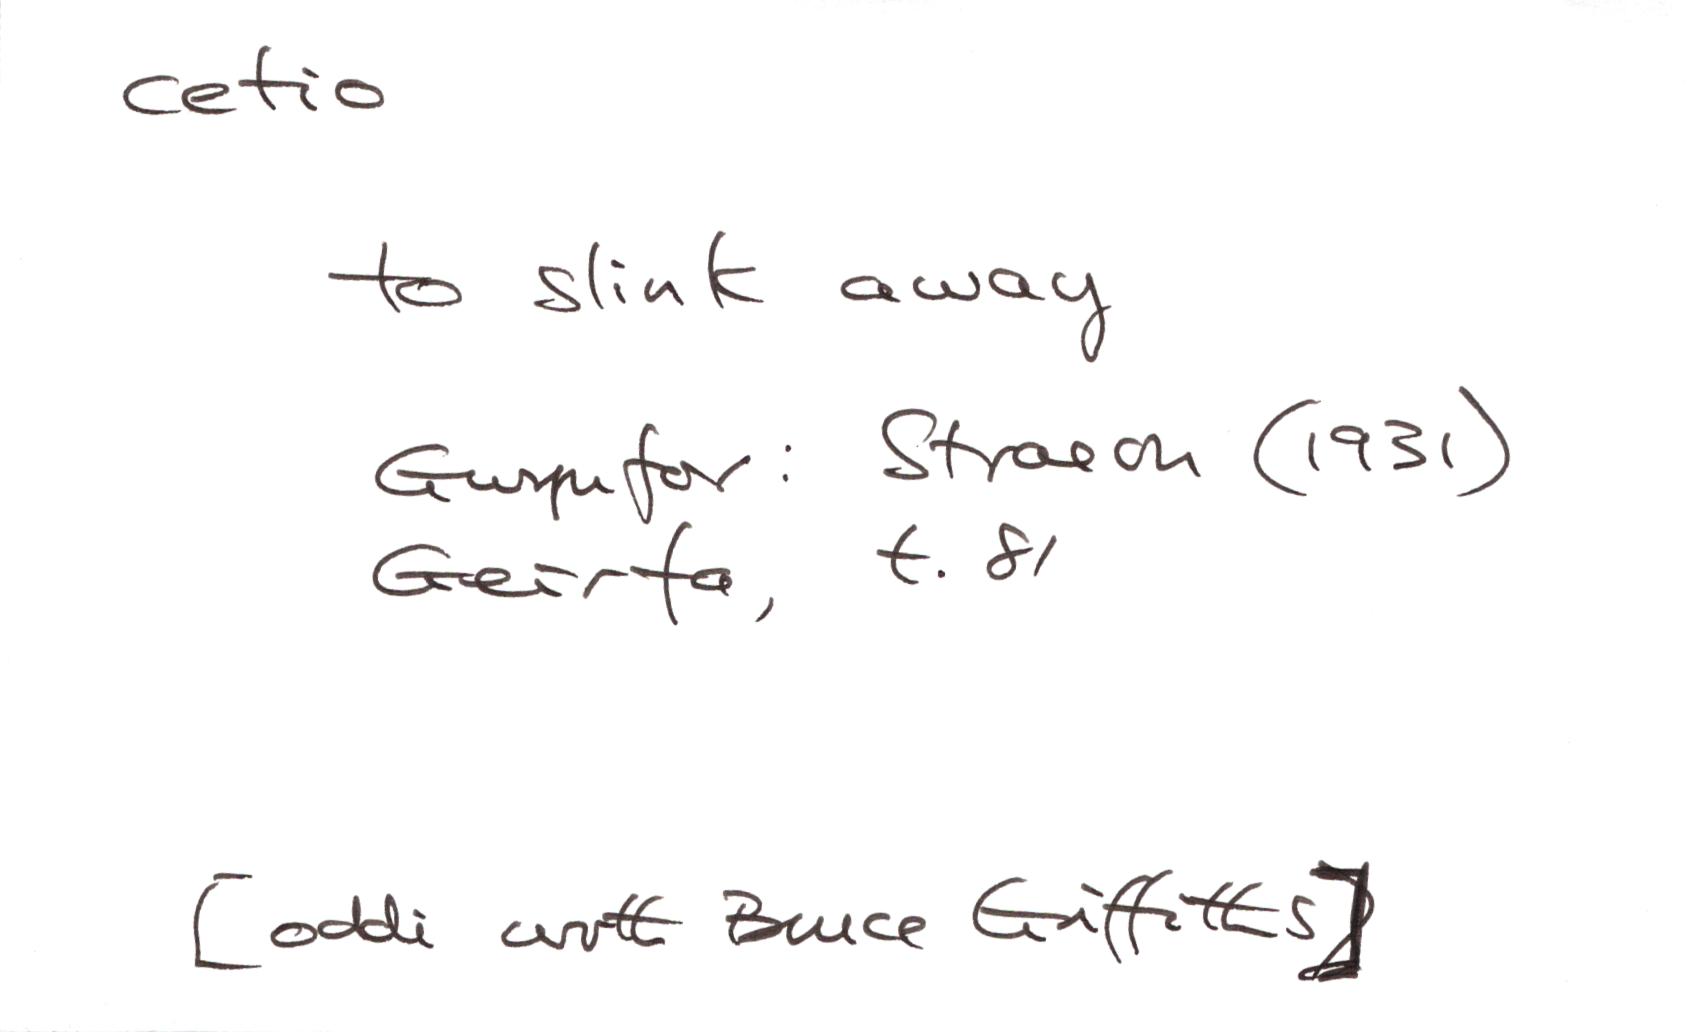 cetio
to slink away
Gwynfor: Straeon (1931)
Geirfa, t. 81
[oddi wrth Bruce Griffiths]